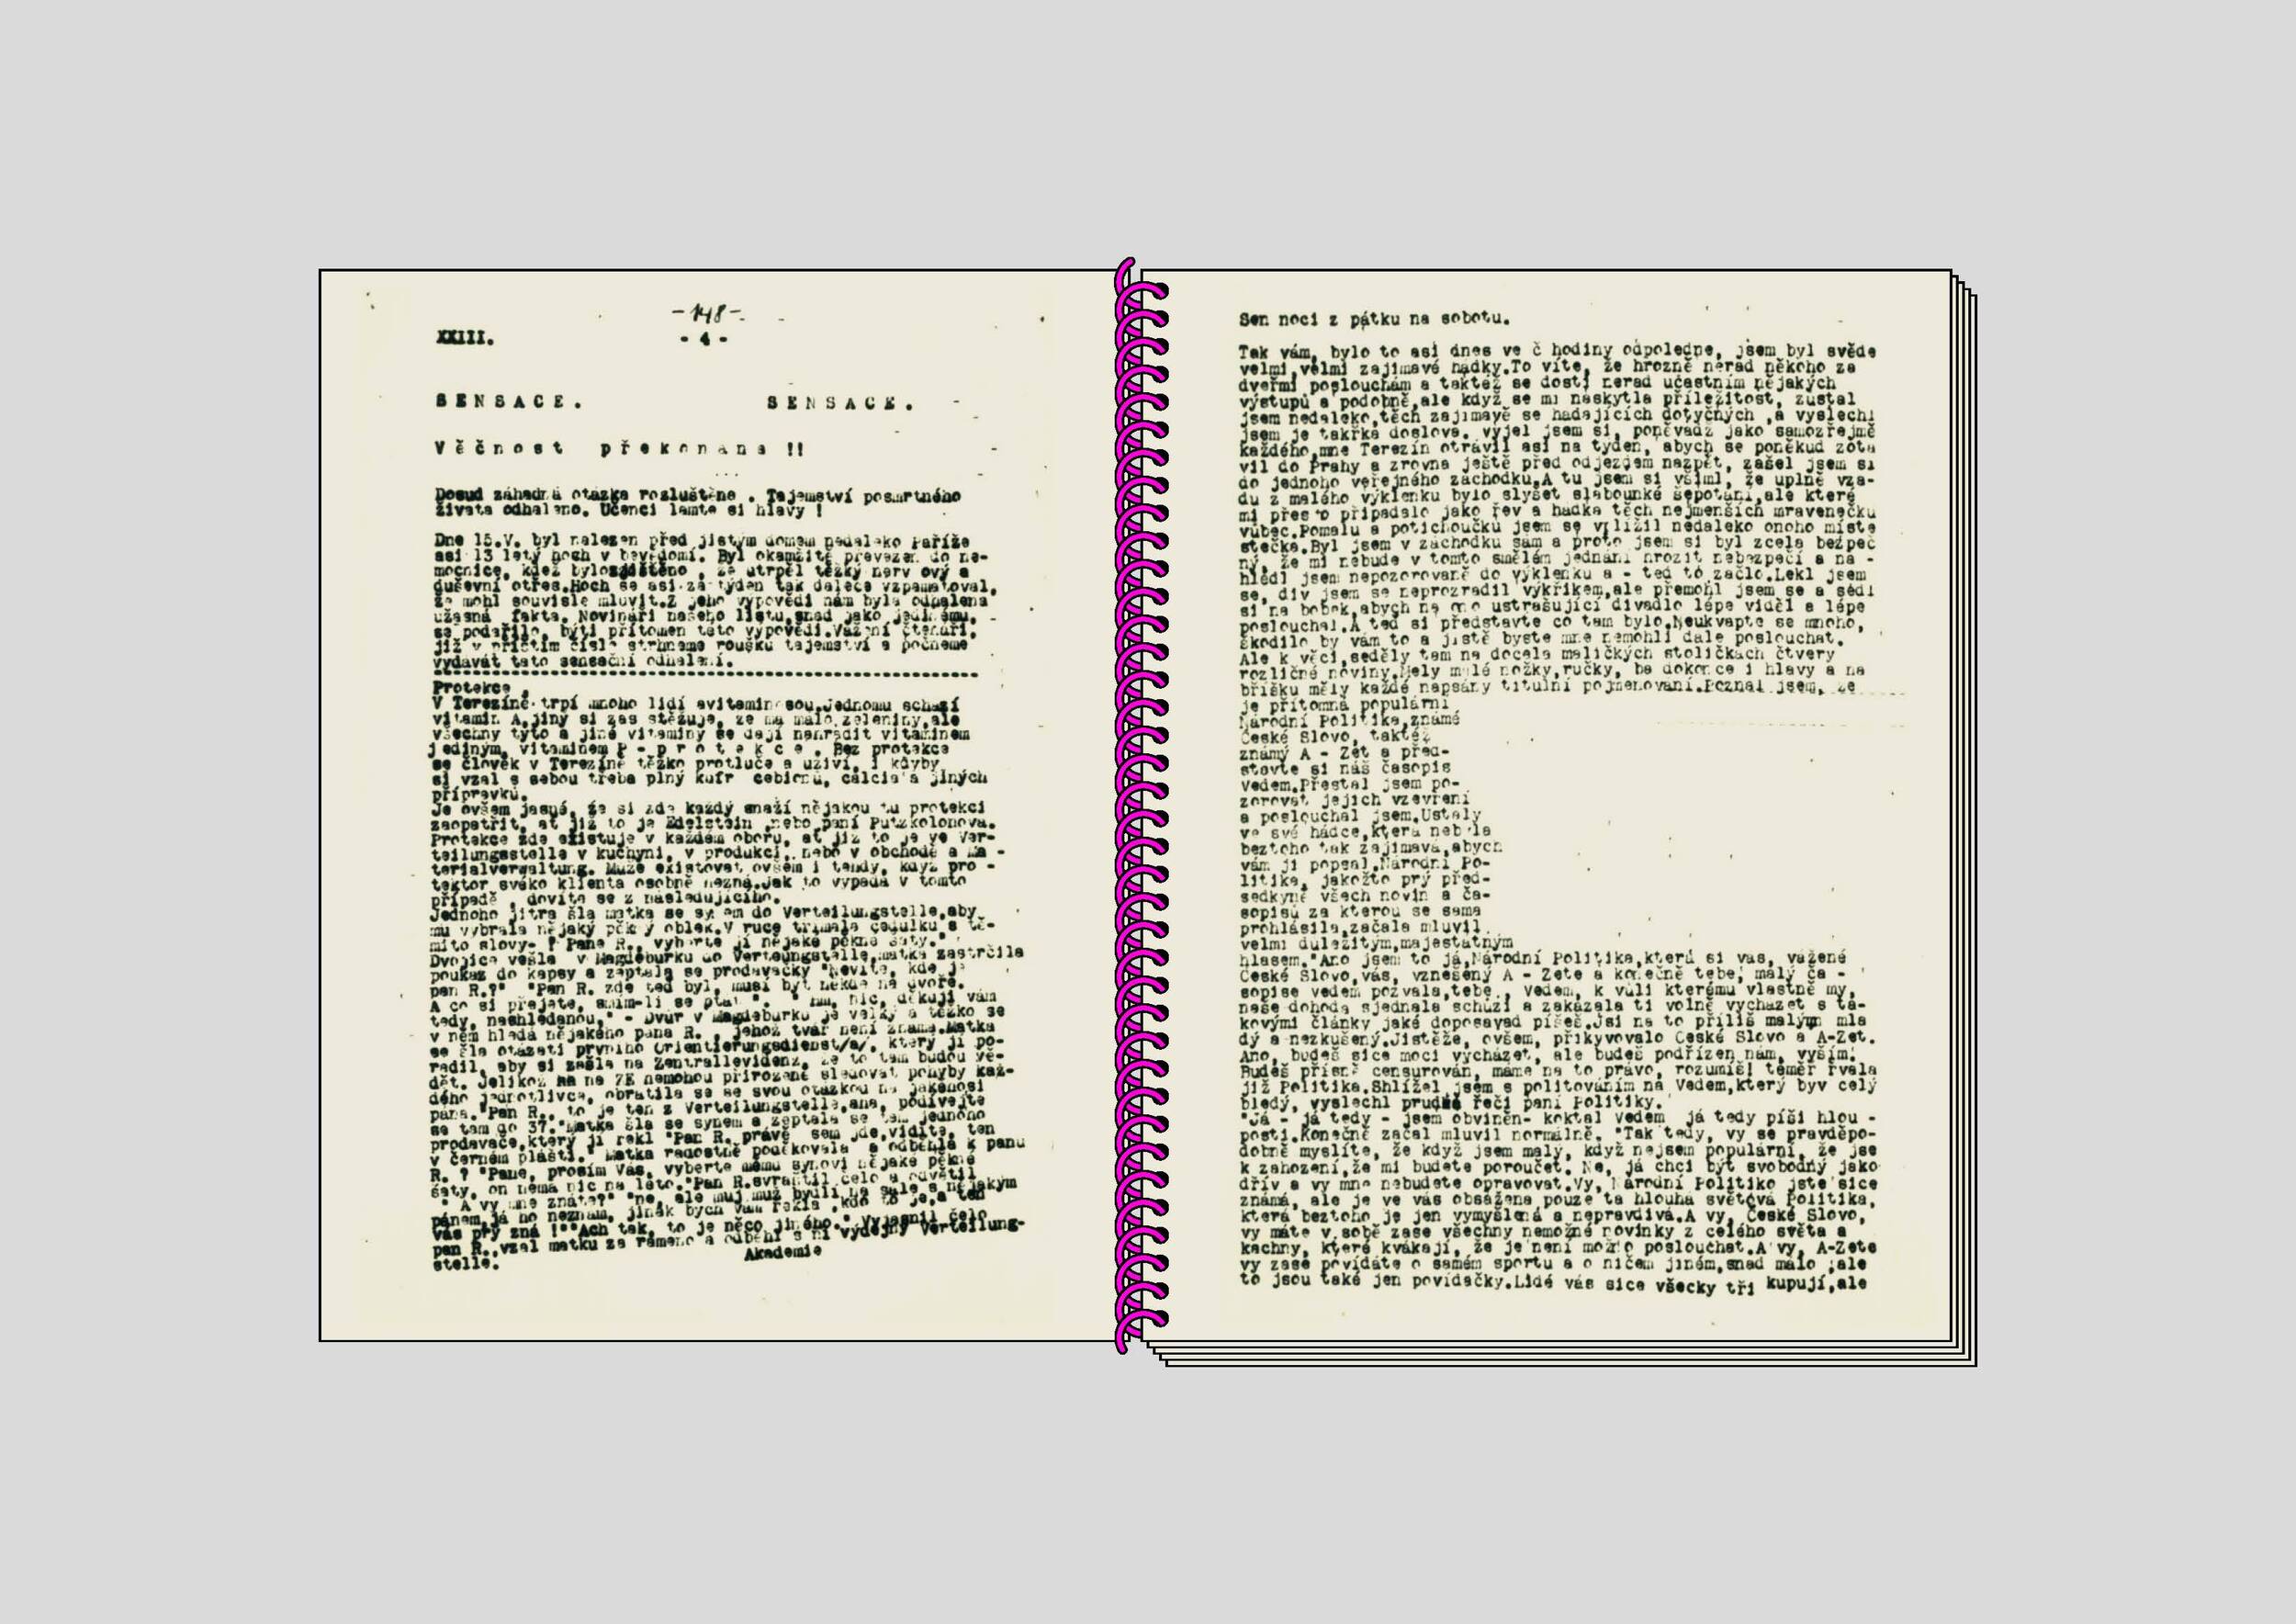 -148-
XXIII.
- 4 -
SENSACE. SENSACE.
Věčnost překonana !!
Dosud záhadná otázka rozluštěna . Tajemství posmrtného
života odhaleno. Učenci lamte si hlavy !
Dne 15.V. byl nalezen před jistým domem nedaleko Paříže
asi 13 letý hoch v bevědomí. Byl okamžitě převezen do ne-
mocnice, kdež bylo , že utrpěl těžký nerv ový a
duševní otřes.Hoch se asi za týden tak dalece vzpamatoval,
že mohl souvisle mluvit.Z jeho výpovědi nám byla odhalena
užasná fakta. Novináři našeho listu,snad jako jedinému,
se podařilo, býti přítomen této výpovědi.Vážení čtenáři,
již v příštím čísle strhneme roušku tajemství a počneme
vydávat tato sensační odhalení.
Protekce .
V Terezíně trpí mnoho lidí avitaminosou.Jednomu schází
vitamin A,jiný si zas stěžuje, že má málo zeleniny,ale
všechny tyto a jiné vitaminy se dají nahradit vitaminem
jediným, vitaminem P - p r o t e k c e . Bez protekce
se člověk v Terezíně těžko protluče a uživí, i kdyby
si vzal s sebou třeba plný kufr cebionu, calcia a jiných
přípravků.
Je ovšem jasné, že si zde každý snaží nějakou tu protekci
zaopatřit, ať již to je Edelstein ,nebo paní Putzkolonova.
Protekce zde existuje v každém oboru, ať již to je ve Ver-
teilungsstelle v kuchyni, v produkci, nebo v obchodě a Ma -
terialverwaltung. Může existovat ovšem i tehdy, když pro -
tektor svéko klienta osobně nezná.Jak to vypadá v tomto
případě , dovíte se z následujícího.
Jednoho jitra šla matka se synem do Verteilungstelle,aby
mu vybrala nějaký pěkný oblek.V ruce třímala cedulku s tě-
mito slovy- " Pane R., vyberte jí nějaké pěkné šaty."
Dvojice vešla v Magdeburku do Verteungstelle,matka zastrčila
poukaz do kapsy a zeptala se prodavačky "Nevíte, kde je
pan R.?" "Pan R. zde teď byl, musí být někde na dvoře.
A co si přejete, smím-li se ptát ". " Hm, nic, děkuji vám
tedy, nashledanou," - Dvůr v Magdeburku je velký a těžko se
v něm hledá nějakého pana R. , jehož tvář není známa.Matka
se šla otázati prvního Orientierungsdienst/a/, který jí po-
radil, aby si zašla na Zentrallevidenz, že to tam budou vě-
dět. Jelikož na ZE nemohou přirozeně sledovat pohyby kaž-
dého jednotlivce, obrátila se se svou otázkou na jakéhosi
pána."Pan R., to je ten z Verteilungstelle,ano, podívejte
se tam do 37."Matka šla se synem a zeptala se tam jednoho
prodavače,který jí řekl "Pan R. právě sem jde,vidíte, ten
v černém plášti." Matka radostně poděkovala a odběhla k panu
R. ? "Pane, prosím Vás, vyberte mému synovi nějaké pěkné
šaty, on nemá nic na léto."Pan R.svraštil čelo a odvětil
" A vy mne znáte?" "ne, ale můj muž bydlí na sále s nějakým
pánem,já ho neznám, jinak bych Vám řekla ,kdo to je,a ten
vás prý zná !""Ach tak, to je něco jiného." Vyjasnil čelo
pan R.,vzal matku za rameno a odběhl s ní výdejny Verteilung-
stelle.
Akademie
Sen noci z pátku na sobotu.
Tak vám, bylo to asi dnes ve č hodiny odpoledne, jsem byl svěde
velmi,velmi zajímavé hádky.To víte, že hrozně nerad někoho za
dveřmi poslouchám a taktéž se dosti nerad účastním nějakých
výstupů a podobně,ale když se mi naskytla příležitost, zůstal
jsem nedaleko,těch zajímavě se hádajících dotyčných ,a vyslechl
jsem je takřka doslova. vyjel jsem si, poněvadž jako samozřejmě
každého,mne Terezín otrávil asi na týden, abych se poněkud zota
vil do Prahy a zrovna ještě před odjezdem nazpět, zašel jsem si
do jednoho veřejného záchodku.A tu jsem si všiml, že uplně vza-
du z malého výklenku bylo slyšet slabounké šepotání,ale které
mi přesto připadalo jako řev a hádka těch nejmenších mravenečků
vůbec.Pomalu a potichoučku jsem se vplížil nedaleko onoho míste
stečka.Byl jsem v záchodku sám a proto jsem si byl zcela bezpeč
ný, že mi nebude v tomto smělém jednání hrozit nebezpečí a na -
hlédl jsem nepozorovaně do výklenku a - teď to začlo.Lekl jsem
se, div jsem se neprozradil výkřikem,ale přemohl jsem se a sedl
si na bobek,abych na ono ustrašující divadlo lépe viděl a lépe
poslouchal.A teď si představte co tam bylo.Neukvapte se mnoho,
škodilo by vám to a jistě byste mne nemohli dále poslouchat.
Ale k věci,seděly tam na docela maličkých stoličkách čtvery
rozličné noviny.Mely malé nožky,ručky, ba dokonce i hlavy a na
bříšku měly každé napsány titulní pojmenování.Poznal jsem, že
je přítomna populární
Národní Politika,známé
České Slovo, taktéž
známý A - Zet a před-
stavte si náš časopis
Vedem.Přestal jsem po-
zorovat jejich vzevření
a poslouchal jsem.Ustaly
ve své hádce,která nebyla
beztoho tak zajímavá,abych
vám ji popsal.Národní Po-
litika, jakožto prý před-
sedkyně všech novin a ča-
sopisů za kterou se sama
prohlásila,začala mluvil
velmi důležitým,majestátným
hlasem."Ano jsem to já,Národní Politika,která si vás, vážené
České Slovo,vás, vznešený A - Zete a konečně tebe, malý ča -
sopise vedem pozvala,tebe , Vedem, k vůli kterému vlastně my,
naše dohoda sjednala schůzi a zakázala ti volně vycházet s ta-
kovými články jaké doposavad píšeš.Jsi na to příliš malým mla
dý a nezkušený.Jistěže, ovšem, přikyvovalo České Slovo a A-Zet.
Ano, budeš sice moci vycházet, ale budeš podřízen nám, vyším.
Budeš přísně censurován, máme na to právo, rozumíš! téměř řvala
již Politika.Shlížel jsem s politováním na Vedem,který byv celý
bledý, vyslechl prudké řeči paní Politiky.
"Já - já tedy - jsem obviněn- koktal Vedem já tedy píši hlou -
posti.Konečně začal mluvil normálně. "Tak tedy, vy se pravděpo-
dobně myslíte, že když jsem malý, když nejsem populární, že jse
k zahození,že mi budete poroučet. Ne, já chci být svobodný jako
dřív a vy mne nebudete opravovat.Vy, Národní Politiko jste sice
známá, ale je ve vás obsažena pouze ta hlouhá světová Politika,
která beztoho je jen vymyšlená a nepravdivá.A vy, České Slovo,
vy máte v sobě zase všechny nemožné novinky z celého světa a
kachny, které kvákají, že je není možno poslouchat.A vy, A-Zete
vy zase povídáte o samém sportu a o ničem jiném,snad málo ,ale
to jsou také jen povídačky.Lidé vás sice všecky tři kupují,ale